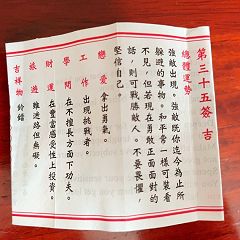 第三十五籤 吉
總體運勢
強敵出現。強敵既你迄今為止所
躲避的事物。和平常一樣可裝看
不見，但若現在勇敢正面面對的
話，則可戰勝敵人。不要畏懼，
堅信自己。
戀愛 拿出勇氣。
工作 出現挑戰者。
學問 在不擅長方面下功夫。
財運 在豐富感受性上投資。
旅遊 雖迷路但無礙。
吉祥物 鈴鐺